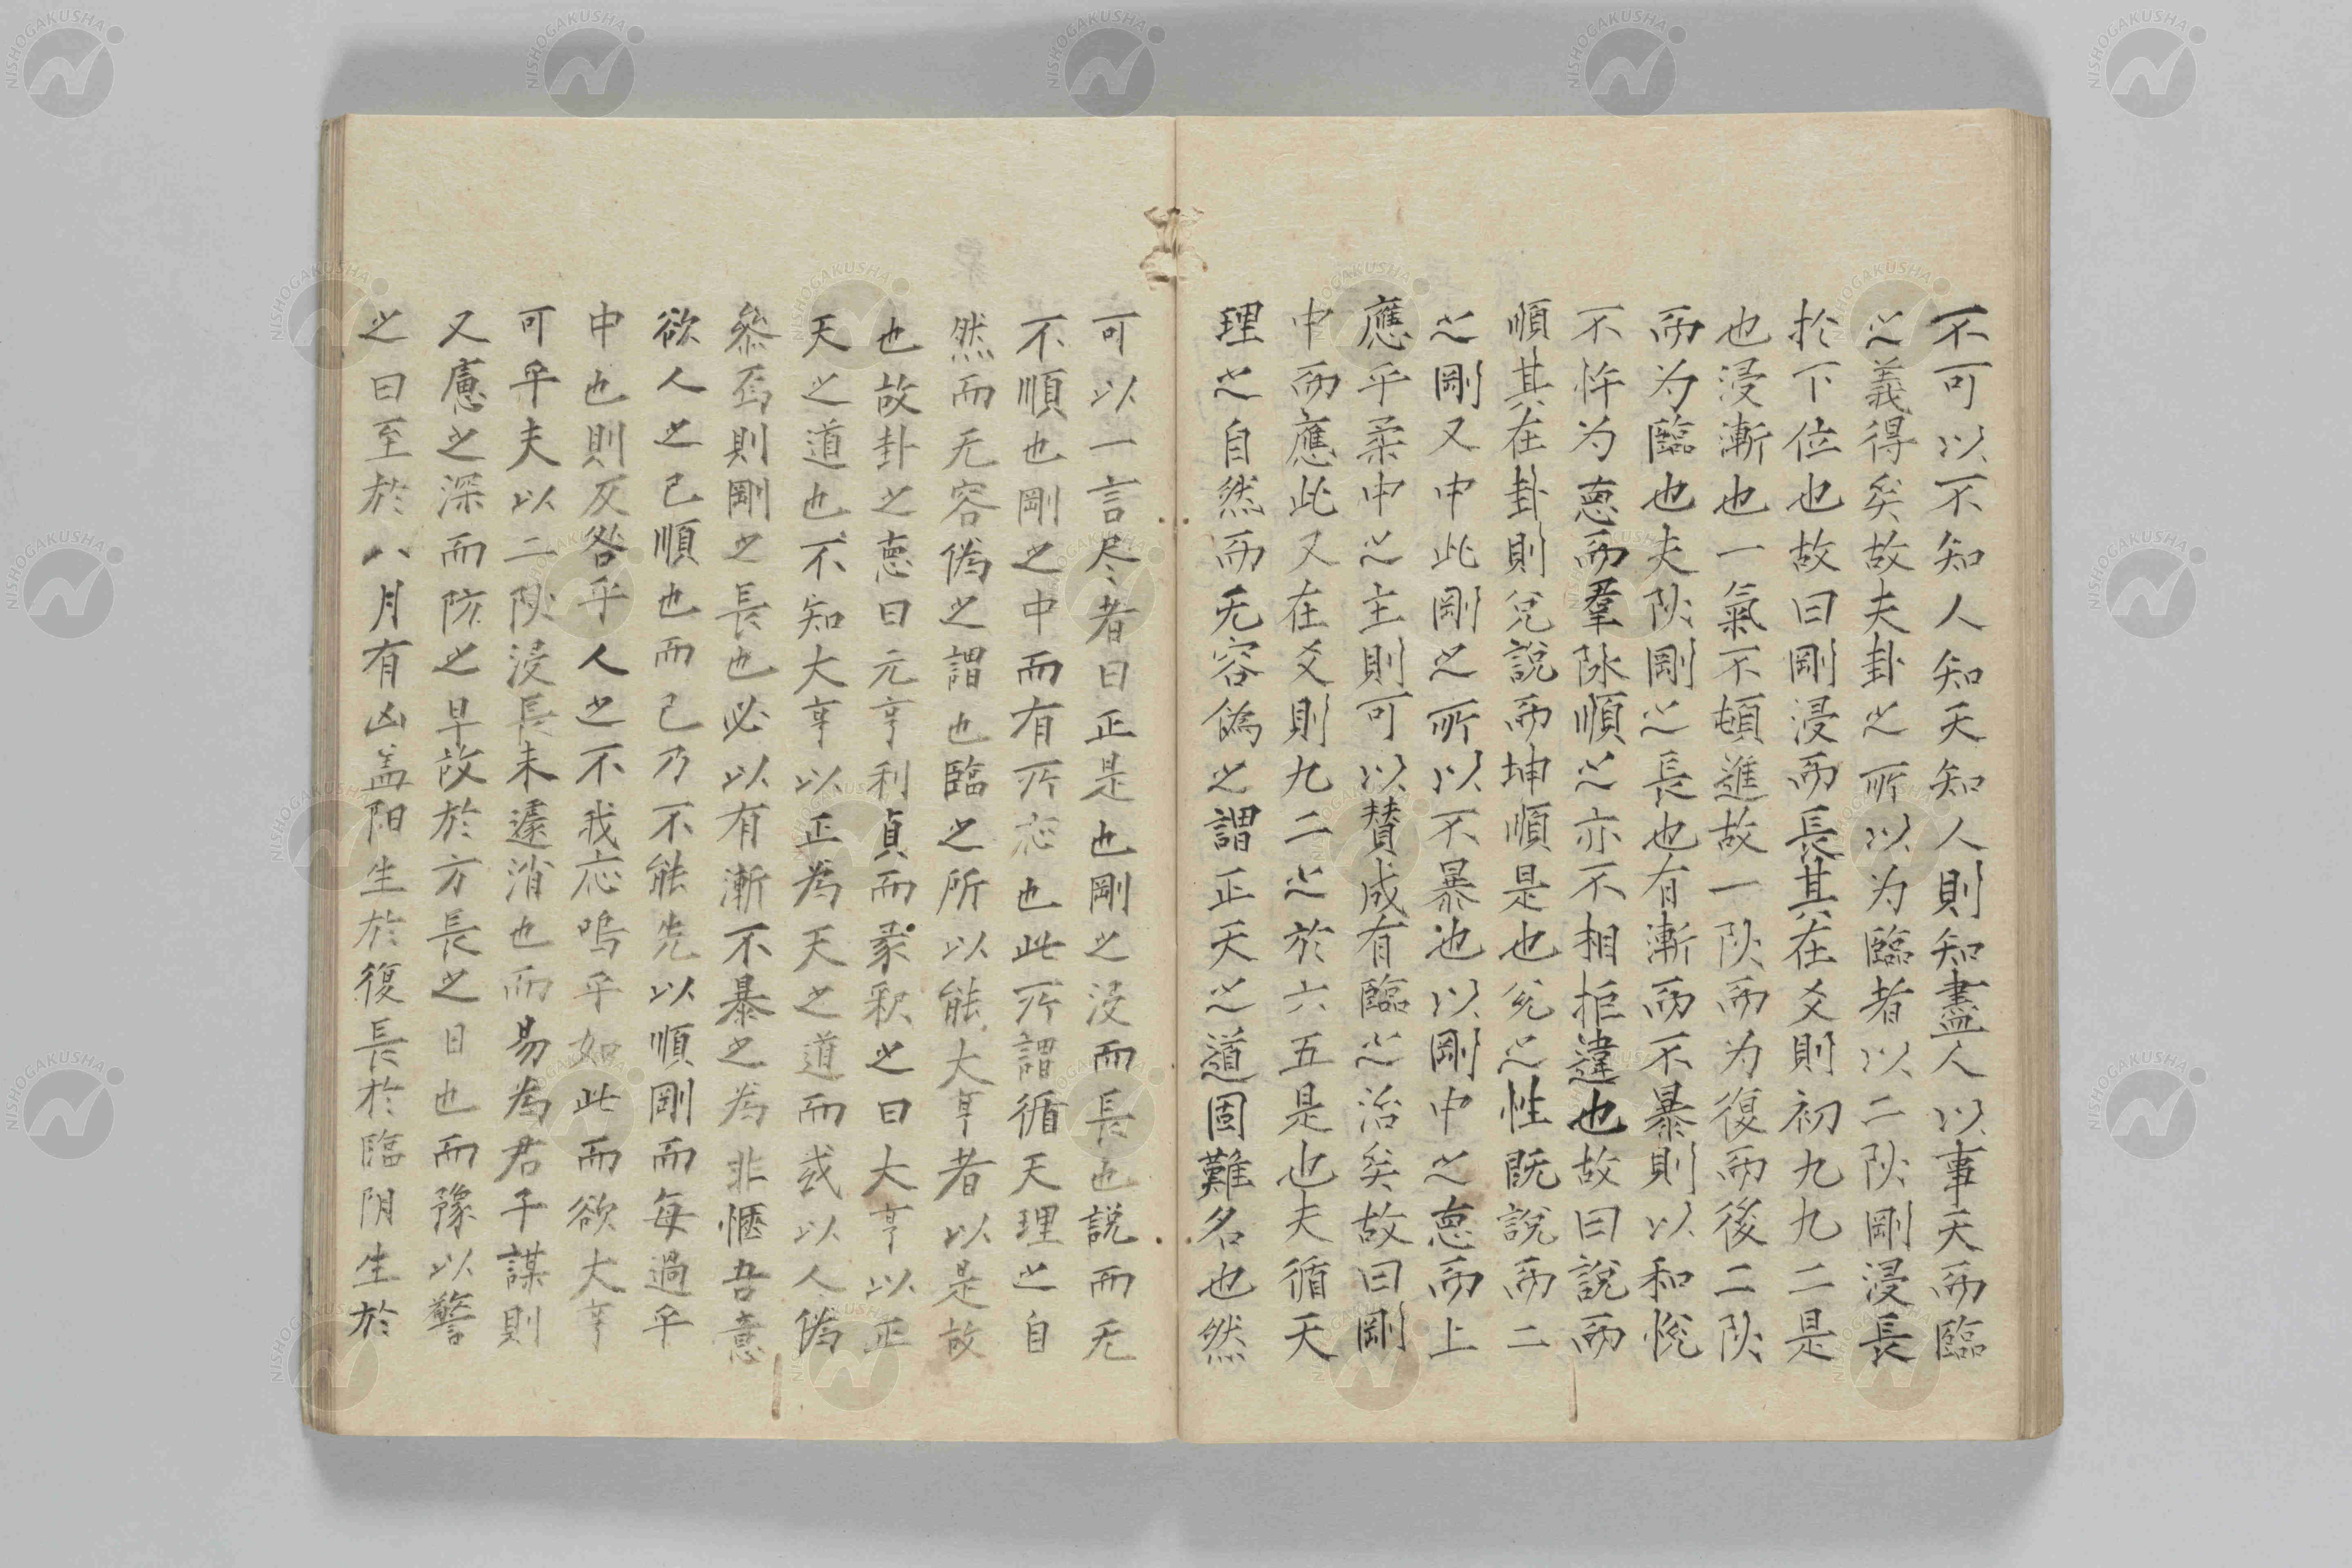 不可以不知人知天知人則知盡人以事天而臨
之義得矣故夫卦之所以为臨者以二阦剛浸長
扵下位也故曰剛浸而長其在爻則初九九二是
也浸漸也一氣不頓進故一阦而为復而後二阦
而为臨也夫阦剛之長也有漸而不暴則以和悅
不忤为悳而羣阥順之亦不相拒違也故曰說而
順其在卦則兌說而坤順是也兌之性既說而二
之剛又中此剛之所以不暴也以剛中之悳而上
應乎柔中之主則可以賛成有臨之治矣故曰剛
中而應此又在爻則九二之於六五是也夫循天
理之自然而无容偽之謂正天之道固難名也然
可以一言尽者曰正是也剛之浸而長也説而无
不順也剛之中而有所応也此所謂循天理之自
然而无容偽之謂也臨之所以能大亨者以是故
也故卦之悳曰元亨利貞而彖釈之曰大亨以正
天之道也不知大亨以正為天之道而或以人偽
叅焉則剛之長也必以有漸不暴之為非愜吾意
欲人之己順也而己乃不能先以順剛而每過乎
中也則反咎乎人之不我応嗚乎如此而欲大亨
可乎夫以二阦浸長未遽消也而易為君子謀則
又慮之深而防之早故於方長之日也而豫以警
之曰至於八月有凶盖阳生於復長於臨阴生於
NISHOGAKUSHA